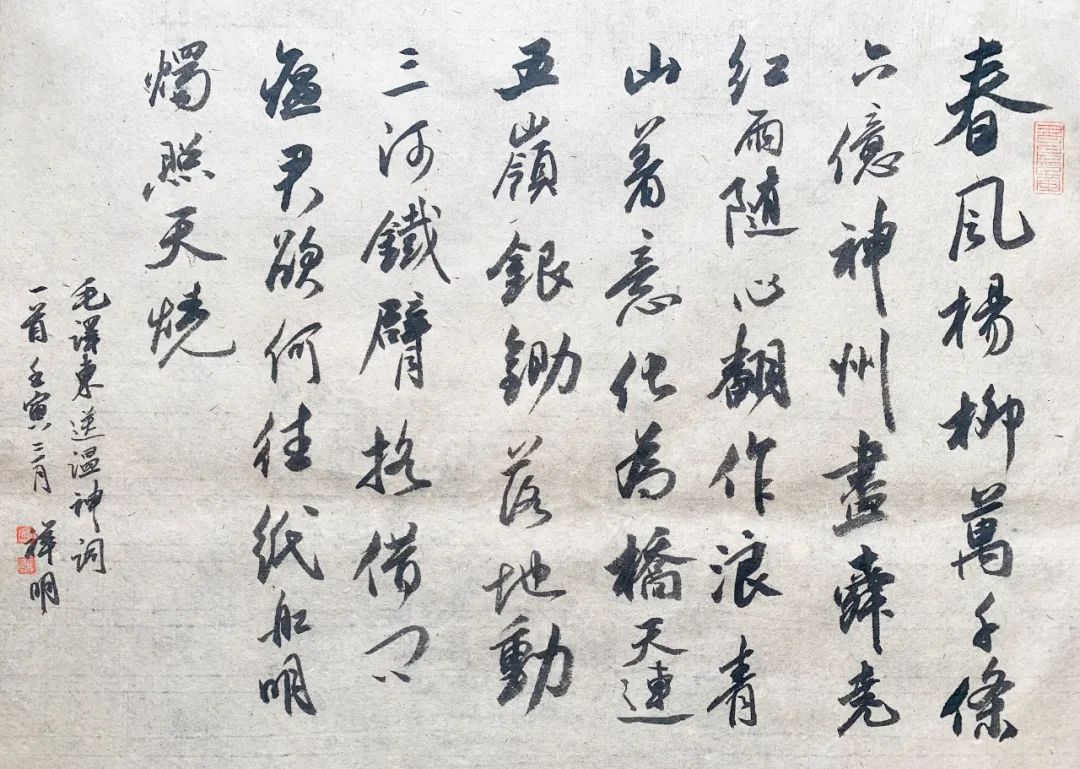 春风楊柳萬千條
六億神州盡舜尧
红雨随心翻作浪 青
山着意化為橋天連
五嶺銀鋤落地動
三河鐵臂摇借问
瘟君欲何往紙船明
燭照天燒
毛澤東送温神詞
一首 壬寅三月 祥明